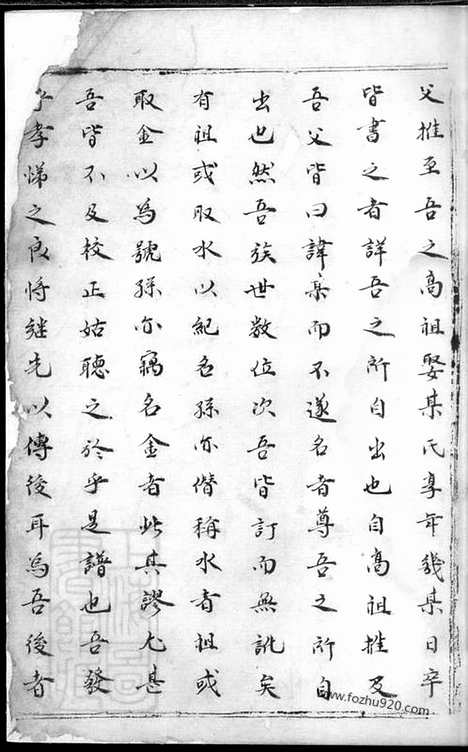 父推至吾之高祖娶某氏享年幾某日卒
皆書之者詳吾之所自出也自高祖推及
吾父皆曰諱某而不遂名者尊吾之所自
出也然吾族世数位次吾皆訂而無訛矣
有祖或取水以紀名孫亦僭稱水者祖或
取金以為號孫亦竊名金者此其謬尤甚
吾皆不及校正姑聽之於乎是譜也吾發
孝悌之良將継先以傳後耳為吾後者
www.fozhu920.com